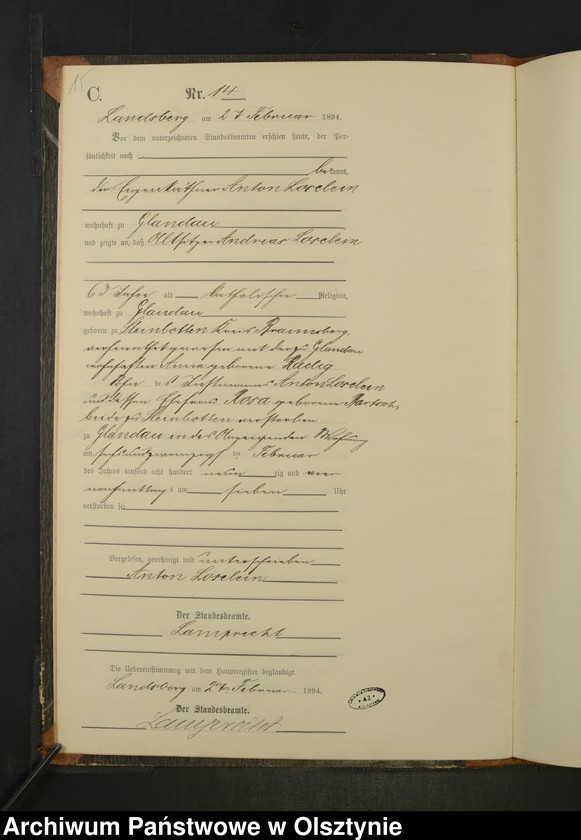 15
C.
Nr. 14
Landsberg am 27 Februar 1894.
Vor dem unterzeichneten Standesbeamten erschien heute, der Per-
sönlichkeit nach
bekannt,
der Eigenkäthner Anton Loselein
wohnhaft zu Glandau
und zeigte an, daß Altsitzer Andreas Loselein
63 Jahre alt katholischer Religion,
wohnhaft zu Glandau
geboren zu Steinbotten Kreis Braunsberg
verheirathet gewesen mit der zu Glandau
wohnhaften Anna geborene Radig
Sohn des Instmanns Anton Loselein
und dessen Ehefrau Rosa geborene
beide zu Steinbotten verstorben
zu Glandau in des Anzeigenden Wohnung
am sechsundzwanzigsten Februar
des Jahres tausend acht hundert neunzig und vier
nachmittags um sieben Uhr
verstorben sei
Vorgelesen, genehmigt und unterschrieben
Anton Loselein
Der Standesbeamte.
Lamprecht
Die Uebereinstimmung mit dem Hauptregister beglaubigt.
Landsberg am 27 Februar 1894.
Der Standesbeamte.
Lamprecht
* 42 *
Archiwum Państwowe w Olsztynie